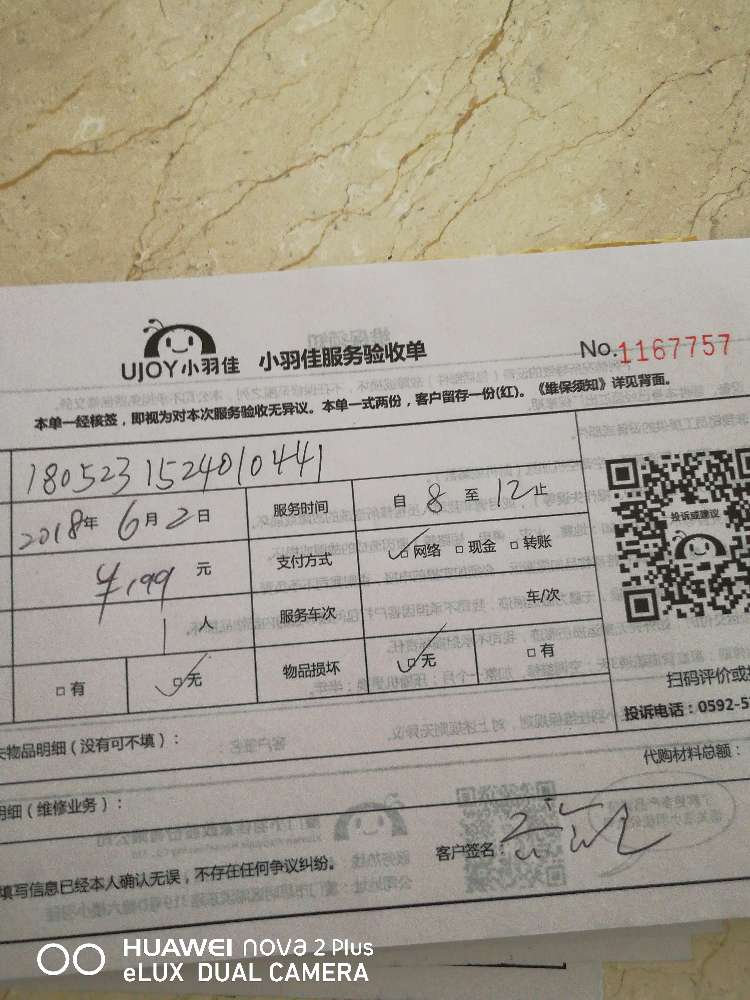 UJOY小羽佳 小羽佳服务验收单 No.1167757
本单一经核签，即视为对本次服务验收无异议。本单一式两份，客户留存一份(红)。《维保须知》详见背面。
1805231524010441
2018年 6月2日 服务时间 自 8 至 12止
￥199 元 支付方式 □网络 □现金 □转账
1 人 服务车次 车/次
□有 □无 物品损坏 □无 □有
投诉或建议
扫码评价或
投诉电话：0592-5
物品明细（没有可不填）：
代购材料总额：
明细（维修业务）：
客户签名：
填写信息已经本人确认无误，不存在任何争议纠纷。
HUAWEI nova 2 Plus
eLUX DUAL CAMERA